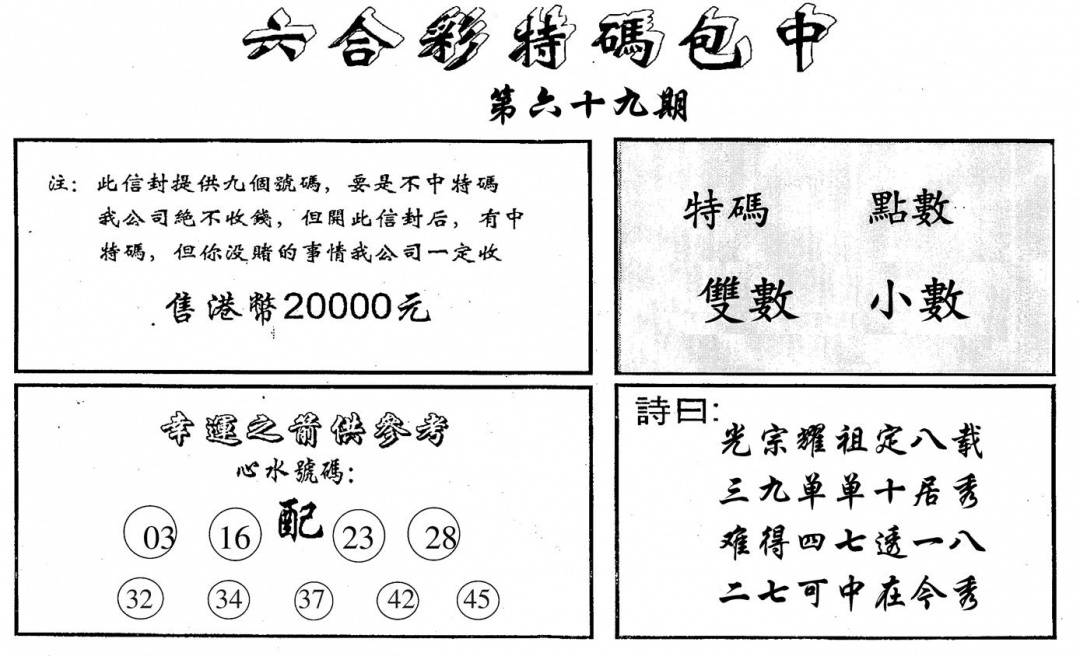 六合彩特碼包中
第六十九期
注：此信封提供九個號碼，要是不中特碼
我公司絕不收錢，但開此信封后，有中
特碼，但你没賭的事情我公司一定收
售港幣20000元
特碼 點數
雙數 小數
幸運之箭供參考
心水號碼：
03 16 配 23 28
32 34 37 42 45
詩曰：
光宗耀祖定八载
三九单单十居秀
难得四七透一八
二七可中在今秀